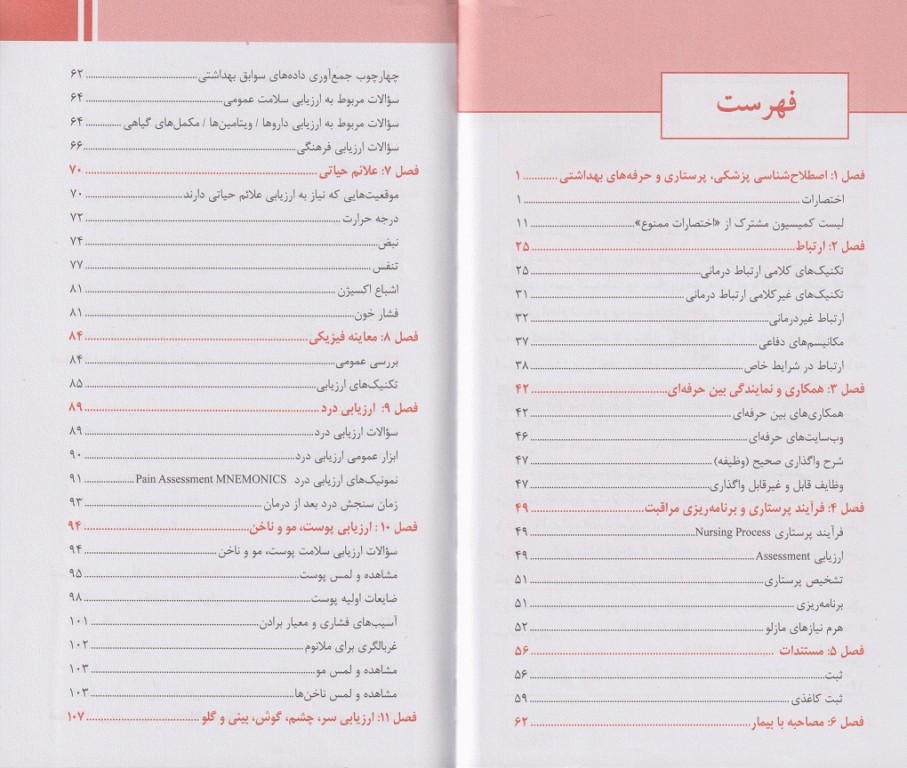 فهرست
فصل ۱: اصطلاح‌شناسی پزشکی، پرستاری و حرفه‌های بهداشتی ............ ۱
اختصارات ............ ۱
لیست کمیسیون مشترک از «اختصارات ممنوع» ............ ۱۱
فصل ۲: ارتباط ............ ۲۵
تکنیک‌های کلامی ارتباط درمانی ............ ۲۵
تکنیک‌های غیرکلامی ارتباط درمانی ............ ۳۱
ارتباط غیردرمانی ............ ۳۲
مکانیسم‌های دفاعی ............ ۳۷
ارتباط در شرایط خاص ............ ۳۸
فصل ۳: همکاری و نمایندگی بین حرفه‌ای ............ ۴۲
همکاری‌های بین حرفه‌ای ............ ۴۲
وب‌سایت‌های حرفه‌ای ............ ۴۶
شرح واگذاری صحیح (وظیفه) ............ ۴۷
وظایف قابل و غیرقابل واگذاری ............ ۴۷
فصل ۴: فرآیند پرستاری و برنامه‌ریزی مراقبت ............ ۴۹
فرآیند پرستاری Nursing Process ............ ۴۹
ارزیابی Assessment ............ ۴۹
تشخیص پرستاری ............ ۵۱
برنامه‌ریزی ............ ۵۱
هرم نیازهای مازلو ............ ۵۲
فصل ۵: مستندات ............ ۵۶
ثبت ............ ۵۶
ثبت کاغذی ............ ۵۹
فصل ۶: مصاحبه با بیمار ............ ۶۲
چهارچوب جمع‌آوری داده‌های سوابق بهداشتی ............ ۶۲
سؤالات مربوط به ارزیابی سلامت عمومی ............ ۶۴
سؤالات مربوط به ارزیابی داروها / ویتامین‌ها / مکمل‌های گیاهی ............ ۶۴
سؤالات ارزیابی فرهنگی ............ ۶۶
فصل ۷: علائم حیاتی ............ ۷۰
موقعیت‌هایی که نیاز به ارزیابی علائم حیاتی دارند ............ ۷۰
درجه حرارت ............ ۷۲
نبض ............ ۷۴
تنفس ............ ۷۷
اشباع اکسیژن ............ ۸۱
فشار خون ............ ۸۱
فصل ۸: معاینه فیزیکی ............ ۸۴
بررسی عمومی ............ ۸۴
تکنیک‌های ارزیابی ............ ۸۵
فصل ۹: ارزیابی درد ............ ۸۹
سؤالات ارزیابی درد ............ ۸۹
ابزار عمومی ارزیابی درد ............ ۹۰
نمونیک‌های ارزیابی درد Pain Assessment MNEMONICS ............ ۹۱
زمان سنجش درد بعد از درمان ............ ۹۳
فصل ۱۰: ارزیابی پوست، مو و ناخن ............ ۹۴
سؤالات ارزیابی سلامت پوست، مو و ناخن ............ ۹۴
مشاهده و لمس پوست ............ ۹۵
ضایعات اولیه پوست ............ ۹۸
آسیب‌های فشاری و معیار برادن ............ ۱۰۱
غربالگری برای ملانوم ............ ۱۰۲
مشاهده و لمس مو ............ ۱۰۳
مشاهده و لمس ناخن‌ها ............ ۱۰۳
فصل ۱۱: ارزیابی سر، چشم، گوش، بینی و گلو ............ ۱۰۷